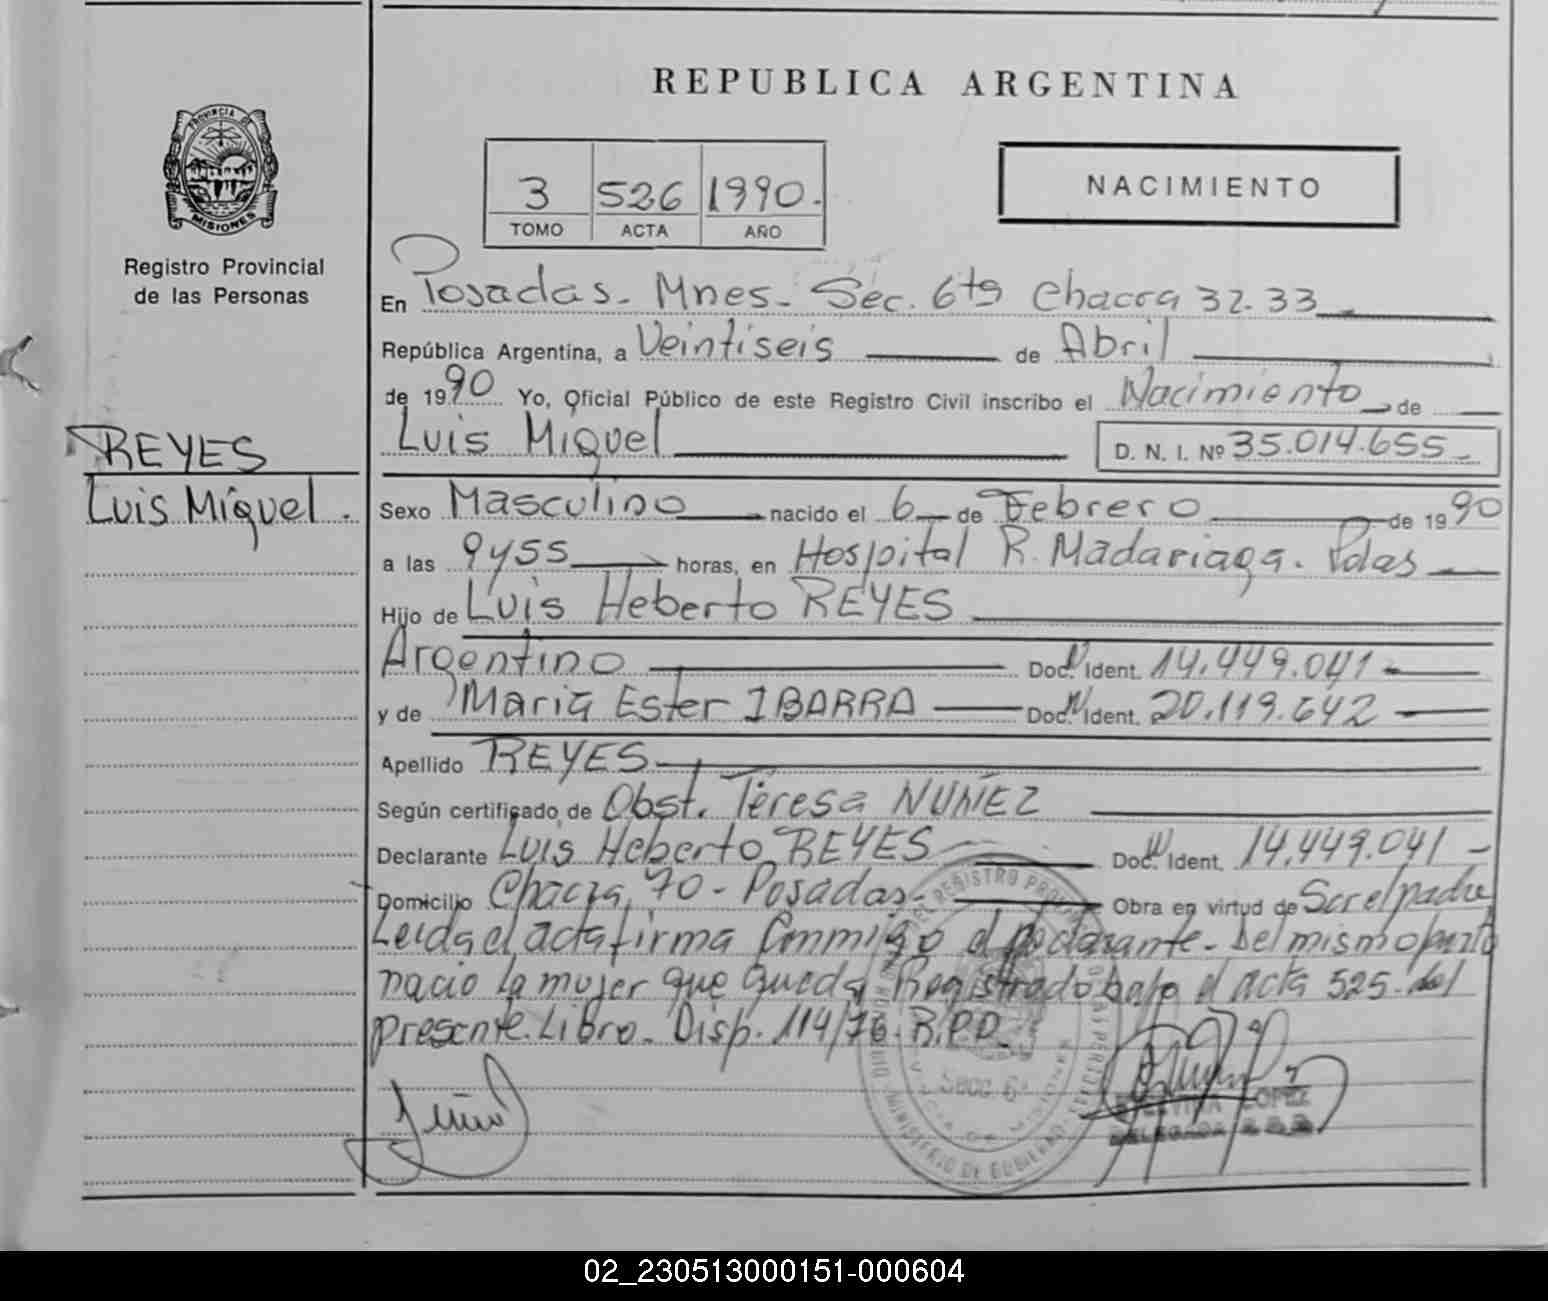 REPUBLICA ARGENTINA
PROVINCIA DE
MISIONES
Registro Provincial
de las Personas
3 526 1990.
TOMO ACTA AÑO
NACIMIENTO
En Posadas - Mnes - Sec. 6ta Chacra 32-33
República Argentina, a Veintiseis de Abril
de 1990 Yo, Oficial Público de este Registro Civil inscribo el Nacimiento de
Luis Miguel D. N. I. Nº 35.014.655
REYES
Luis Miguel.
Sexo Masculino nacido el 6 de Febrero de 1990
a las 9 y 55 horas, en Hospital R. Madariaga. Pdas
Hijo de Luis Heberto REYES
Argentino Doc. Ident. 14.449.041
y de Maria Ester IBARRA Doc. Ident. 20.119.642
Apellido REYES
Según certificado de Obst. Teresa NUÑEZ
Declarante Luis Heberto REYES Doc. Ident. 14.449.041 -
Domicilio Chacra 70 - Posadas - Obra en virtud de Ser el padre
Leida el acta firma Conmigo el declarante - Del mismo parto
nacio la mujer que queda Registrado bajo el acta 525 del
presente Libro - Disp. 114/76 - R.P.P.
LOPEZ
DELEGADA
02_230513000151-000604